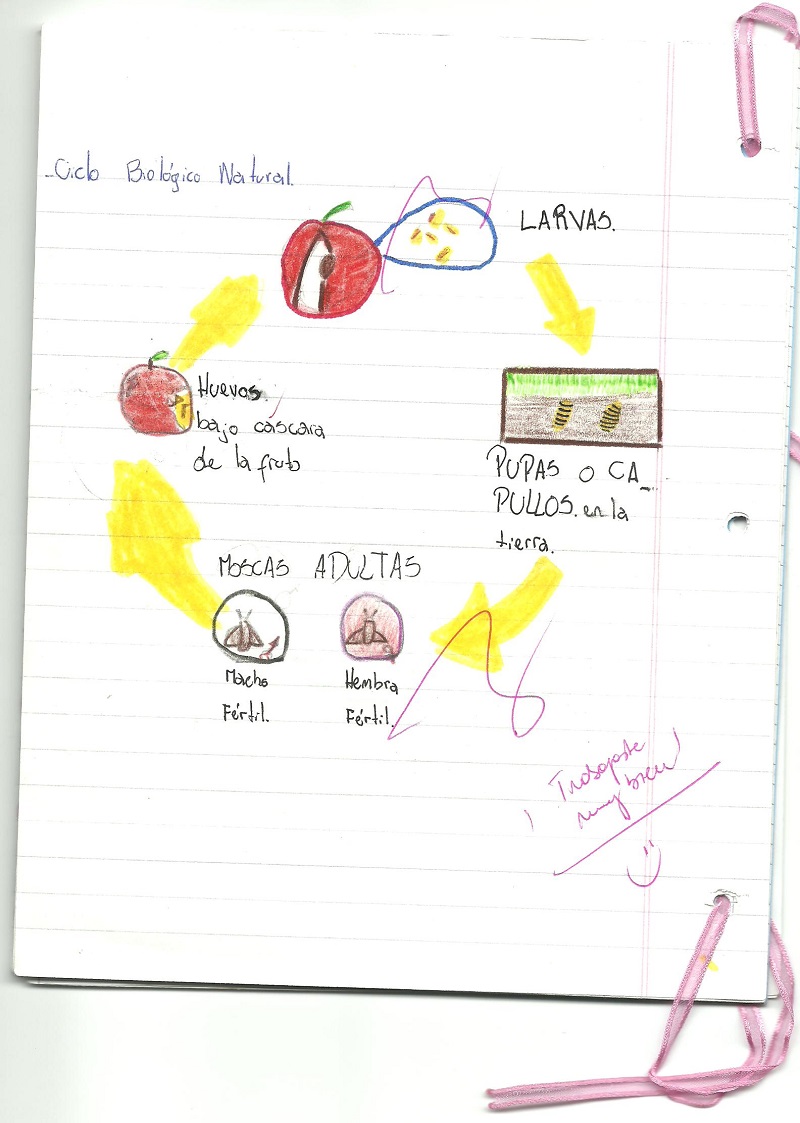 -Ciclo Biológico Natural.
LARVAS.
Huevos
bajo cáscara
de la fruta
PUPAS O CA_
PULLOS. en la
tierra.
MOSCAS ADULTAS
Macho
Fértil.
Hembra
Fértil.
¡Trabajaste
muy bien!